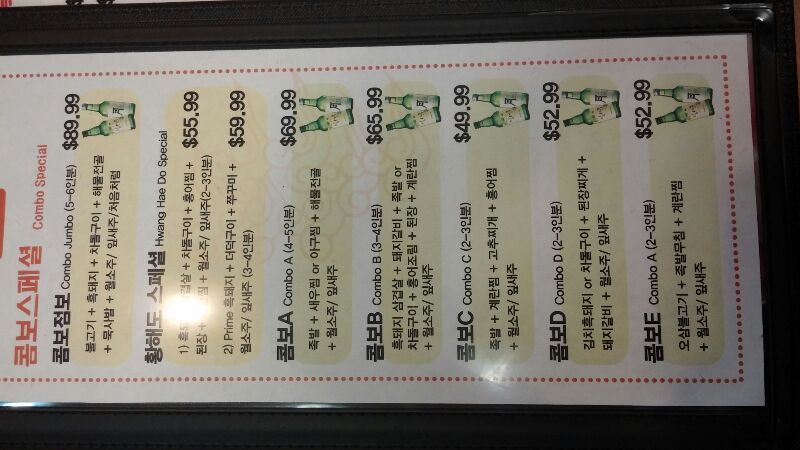 콤보스페셜 Combo Special
콤보점보 Combo Jumbo (5-6인분) $89.99
불고기 + 흑돼지 + 차돌구이 + 해물전골
+ 묵사발 + 월소주/ 잎새주/처음처럼
황해도 스페셜 Hwang Hae Do Special
1) 흑돼지 삼겹살 + 차돌구이 + 홍어찜 + $55.99
된장 + 월소주/ 잎새주(2-3인분)
2) Prime 흑돼지 + 더덕구이 + 쭈꾸미 + $59.99
월소주/ 잎새주 (3-4인분)
콤보A Combo A (4-5인분) $69.99
족발 + 새우찜 or 아구찜 + 해물전골
+ 월소주/ 잎새주
콤보B Combo B (3-4인분) $65.99
흑돼지 삼겹살 + 돼지갈비 + 족발 or
차돌구이 + 홍어조림 + 된장 + 계란찜
+ 월소주/ 잎새주
콤보C Combo C (2-3인분) $49.99
족발 + 계란찜 + 고추찌개 + 홍어찜
+ 월소주/ 잎새주
콤보D Combo D (2-3인분) $52.99
김치흑돼지 or 차돌구이 + 된장찌개 +
돼지갈비 + 월소주/ 잎새주
콤보E Combo A (2-3인분) $52.99
오삼불고기 + 족발무침 + 계란찜
+ 월소주/ 잎새주